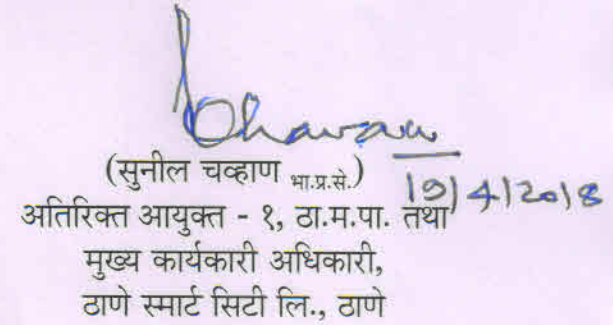 Chavan
(सुनील चव्हाण भा.प्र.से.)
19/4/2018
अतिरिक्त आयुक्त - १, ठा.म.पा. तथा
मुख्य कार्यकारी अधिकारी,
ठाणे स्मार्ट सिटी लि., ठाणे